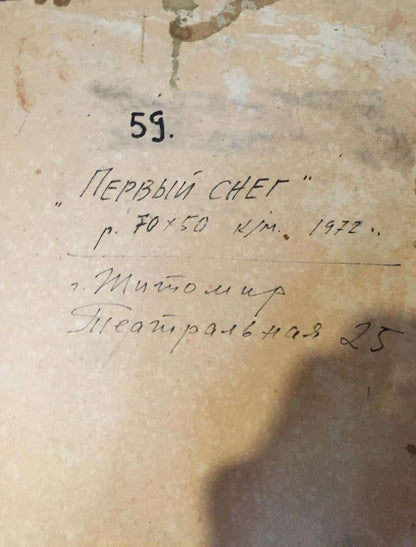 59.
„ПЕРВЫЙ СНЕГ"
р. 70×50 к/м. 1972 г.
г. Житомир
Театральная 25